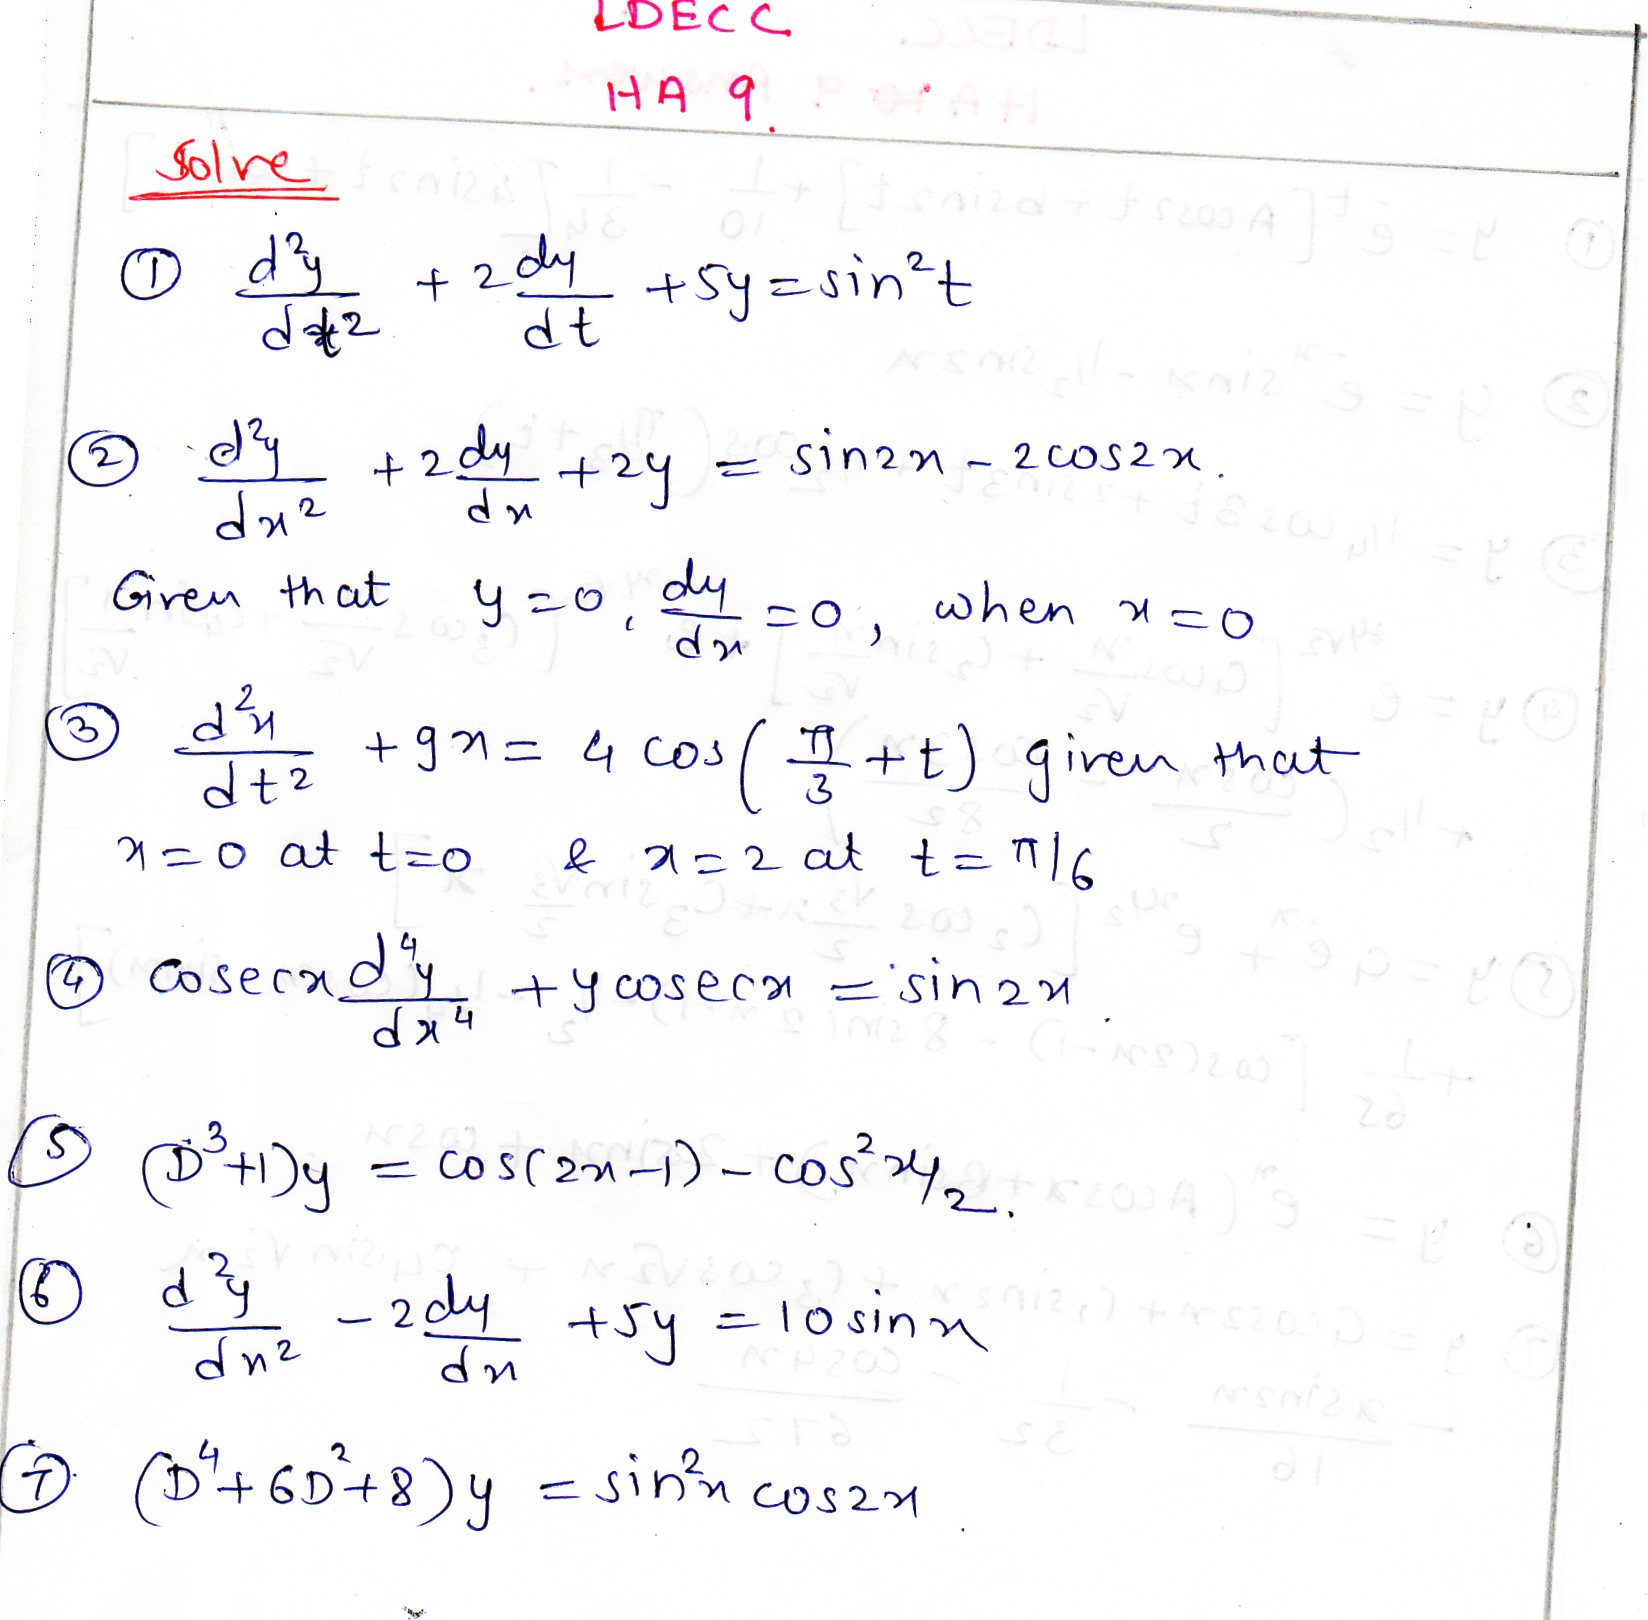 LDECC
HA 9.
Solve
① d²y/dt² + 2 dy/dt + 5y = sin²t
② d²y/dx² + 2 dy/dx + 2y = sin2x - 2cos2x.
Given that y=0, dy/dx = 0, when x=0
③ d²x/dt² + 9x = 4 cos(π/3 + t) given that
x=0 at t=0 & x=2 at t=π/6
④ cosecx d⁴y/dx⁴ + y cosecx = sin2x.
⑤ (D³+1)y = cos(2x-1) - cos²x/2.
⑥ d²y/dx² - 2dy/dx + 5y = 10 sinx
⑦ (D⁴+6D²+8)y = sin²x cos2x.